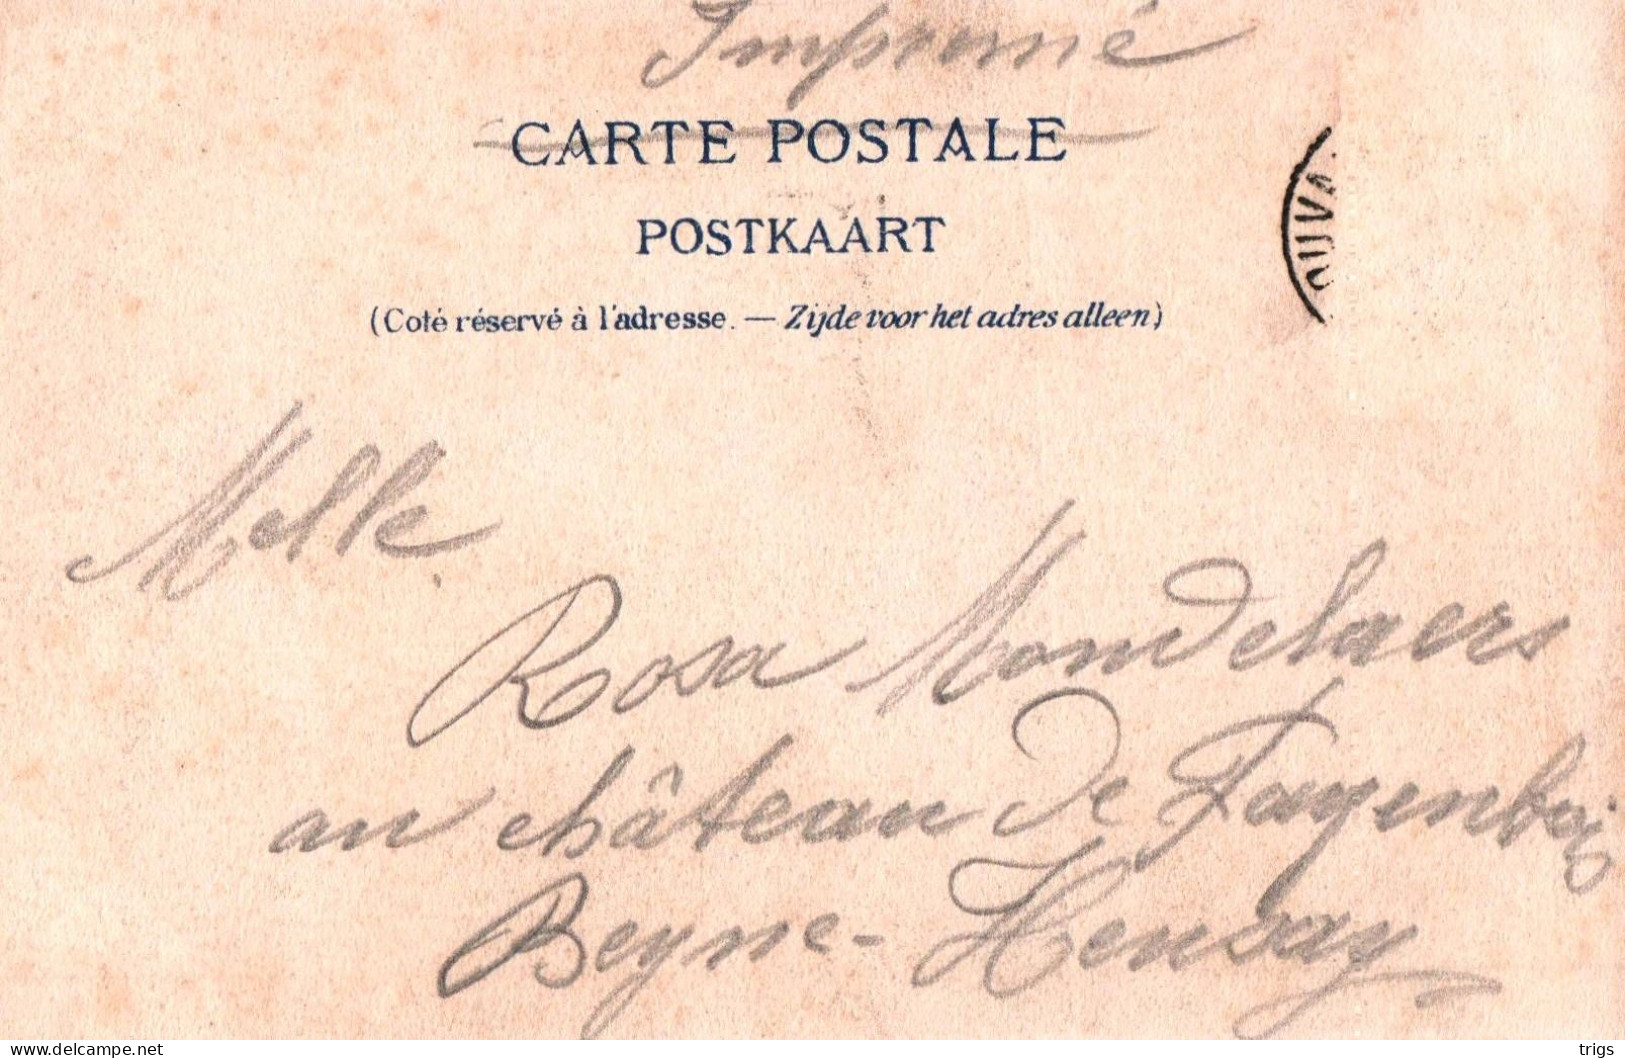 Imprimé
CARTE POSTALE
POSTKAART
(Coté réservé à l'adresse. — Zijde voor het adres alleen)
Melle
Rosa Mondelaers
au château de Fayenbois
Beyne-Heusay
delcampe.net
trigs